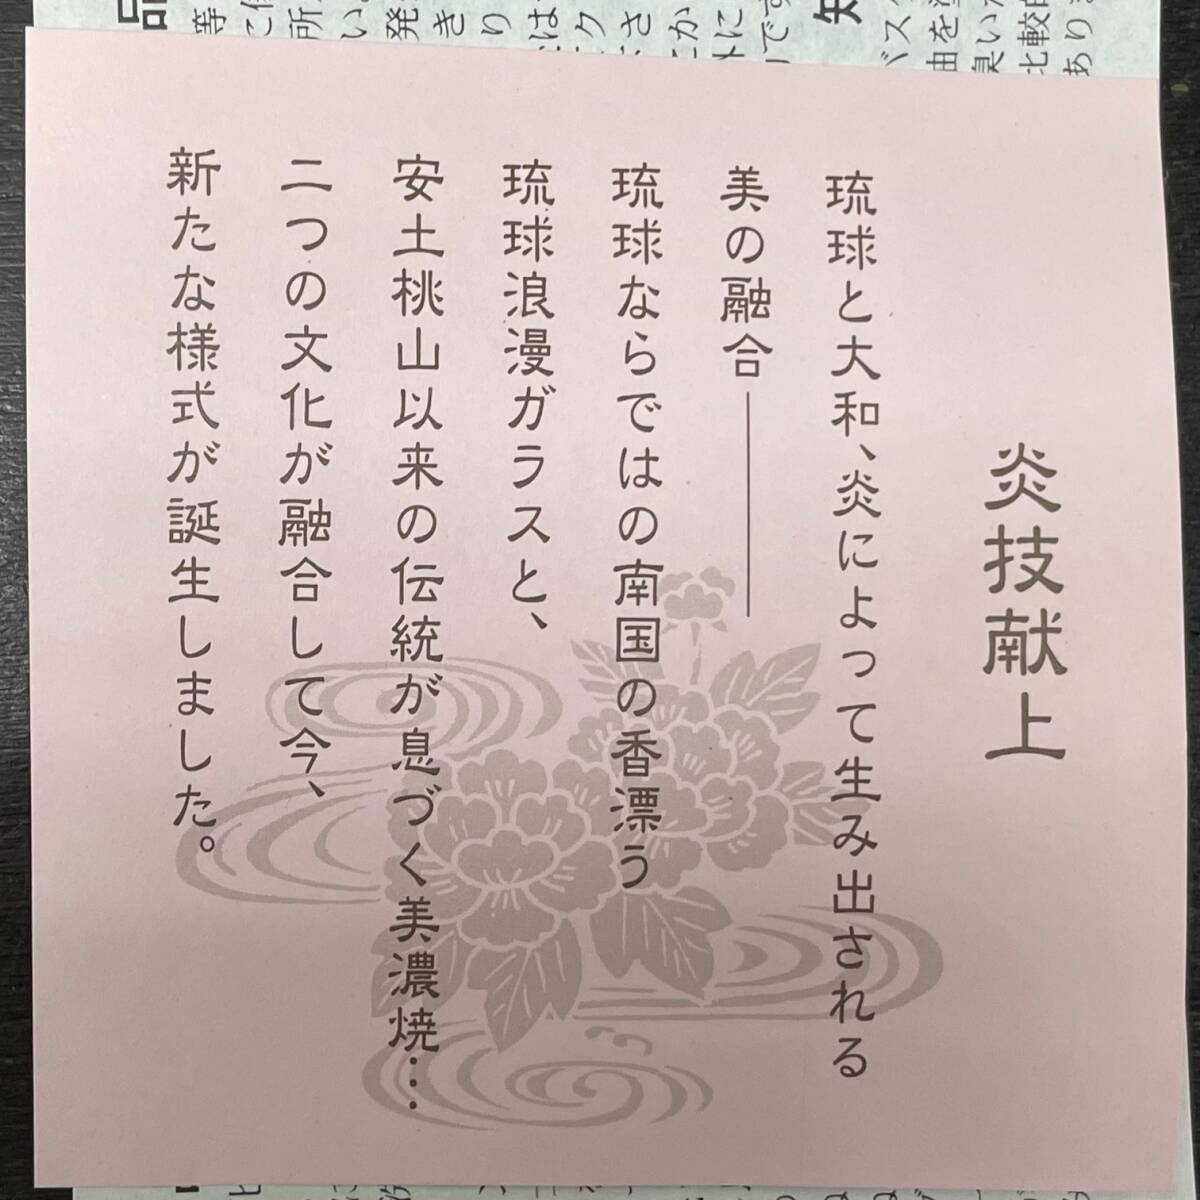 炎技献上
琉球と大和、炎によって生み出される
美の融合――――
琉球ならではの南国の香漂う
琉球浪漫ガラスと、
安土桃山以来の伝統が息づく美濃焼…
二つの文化が融合して今、
新たな様式が誕生しました。